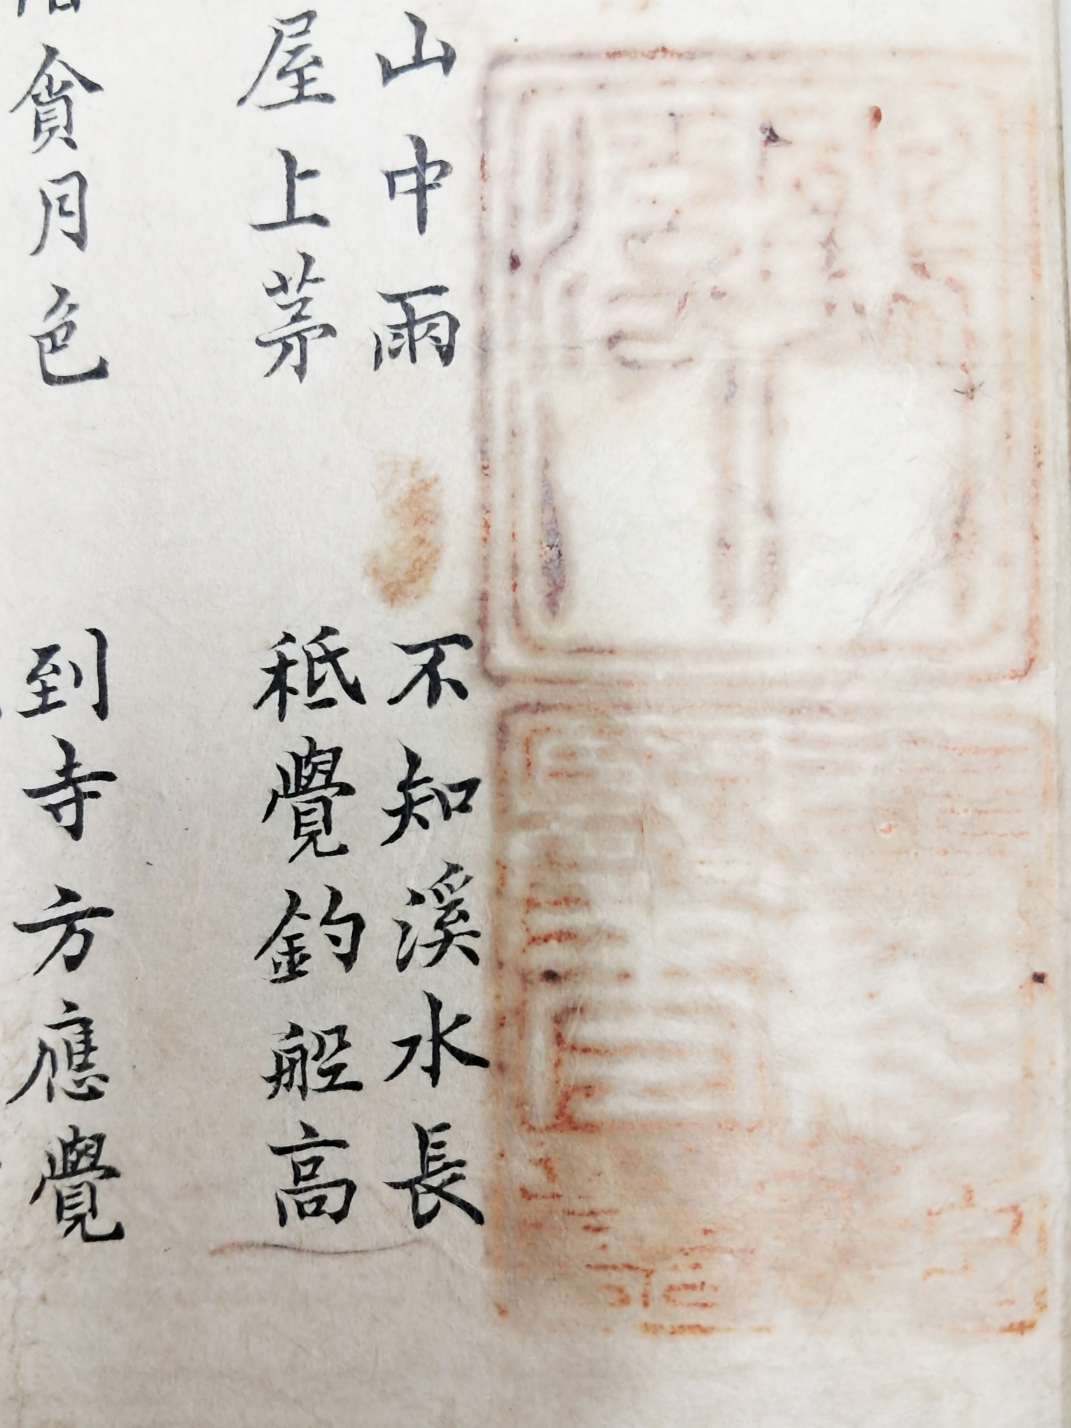 山中雨　不知溪水長
屋上茅　秪覺釣船高
貪月色　到寺方應覺